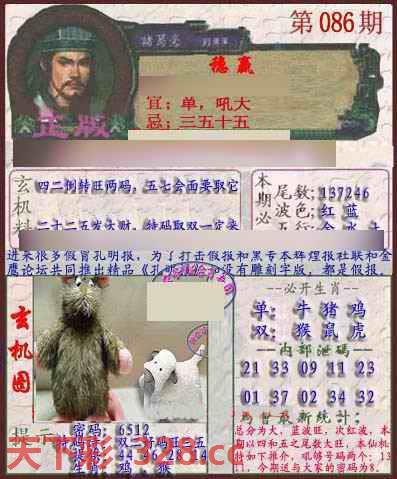 第086期
諸葛亮
穩贏
宜：单，吼大
忌：三五十五
正版
玄机料
四二倒转旺两码，五七会面要取它
二十二五发大财，特码取双一定来
本期必
尾数:137246
波色:红 蓝
进来很多假冒孔明报，为了打击假报和黑专本辉煌报社联和金
鹰论坛共同推出精品
没有雕刻字版，都是假报．
玄机图
--必开生肖--
单：牛 猪 鸡
双：猴 鼠 虎
--内部泄码--
21 33 09 11 23
13 05 29 49 43
01 37 02 34 32
总分为大，蓝波旺，次红波，本
期以四和五之尾数大旺，本仙机
特如下推介，吼够号码两个：13
今期送与大家的密码为8．
提示
密码：6512
44 46 28 14
生肖：鸡 猴
天下彩-328.cc